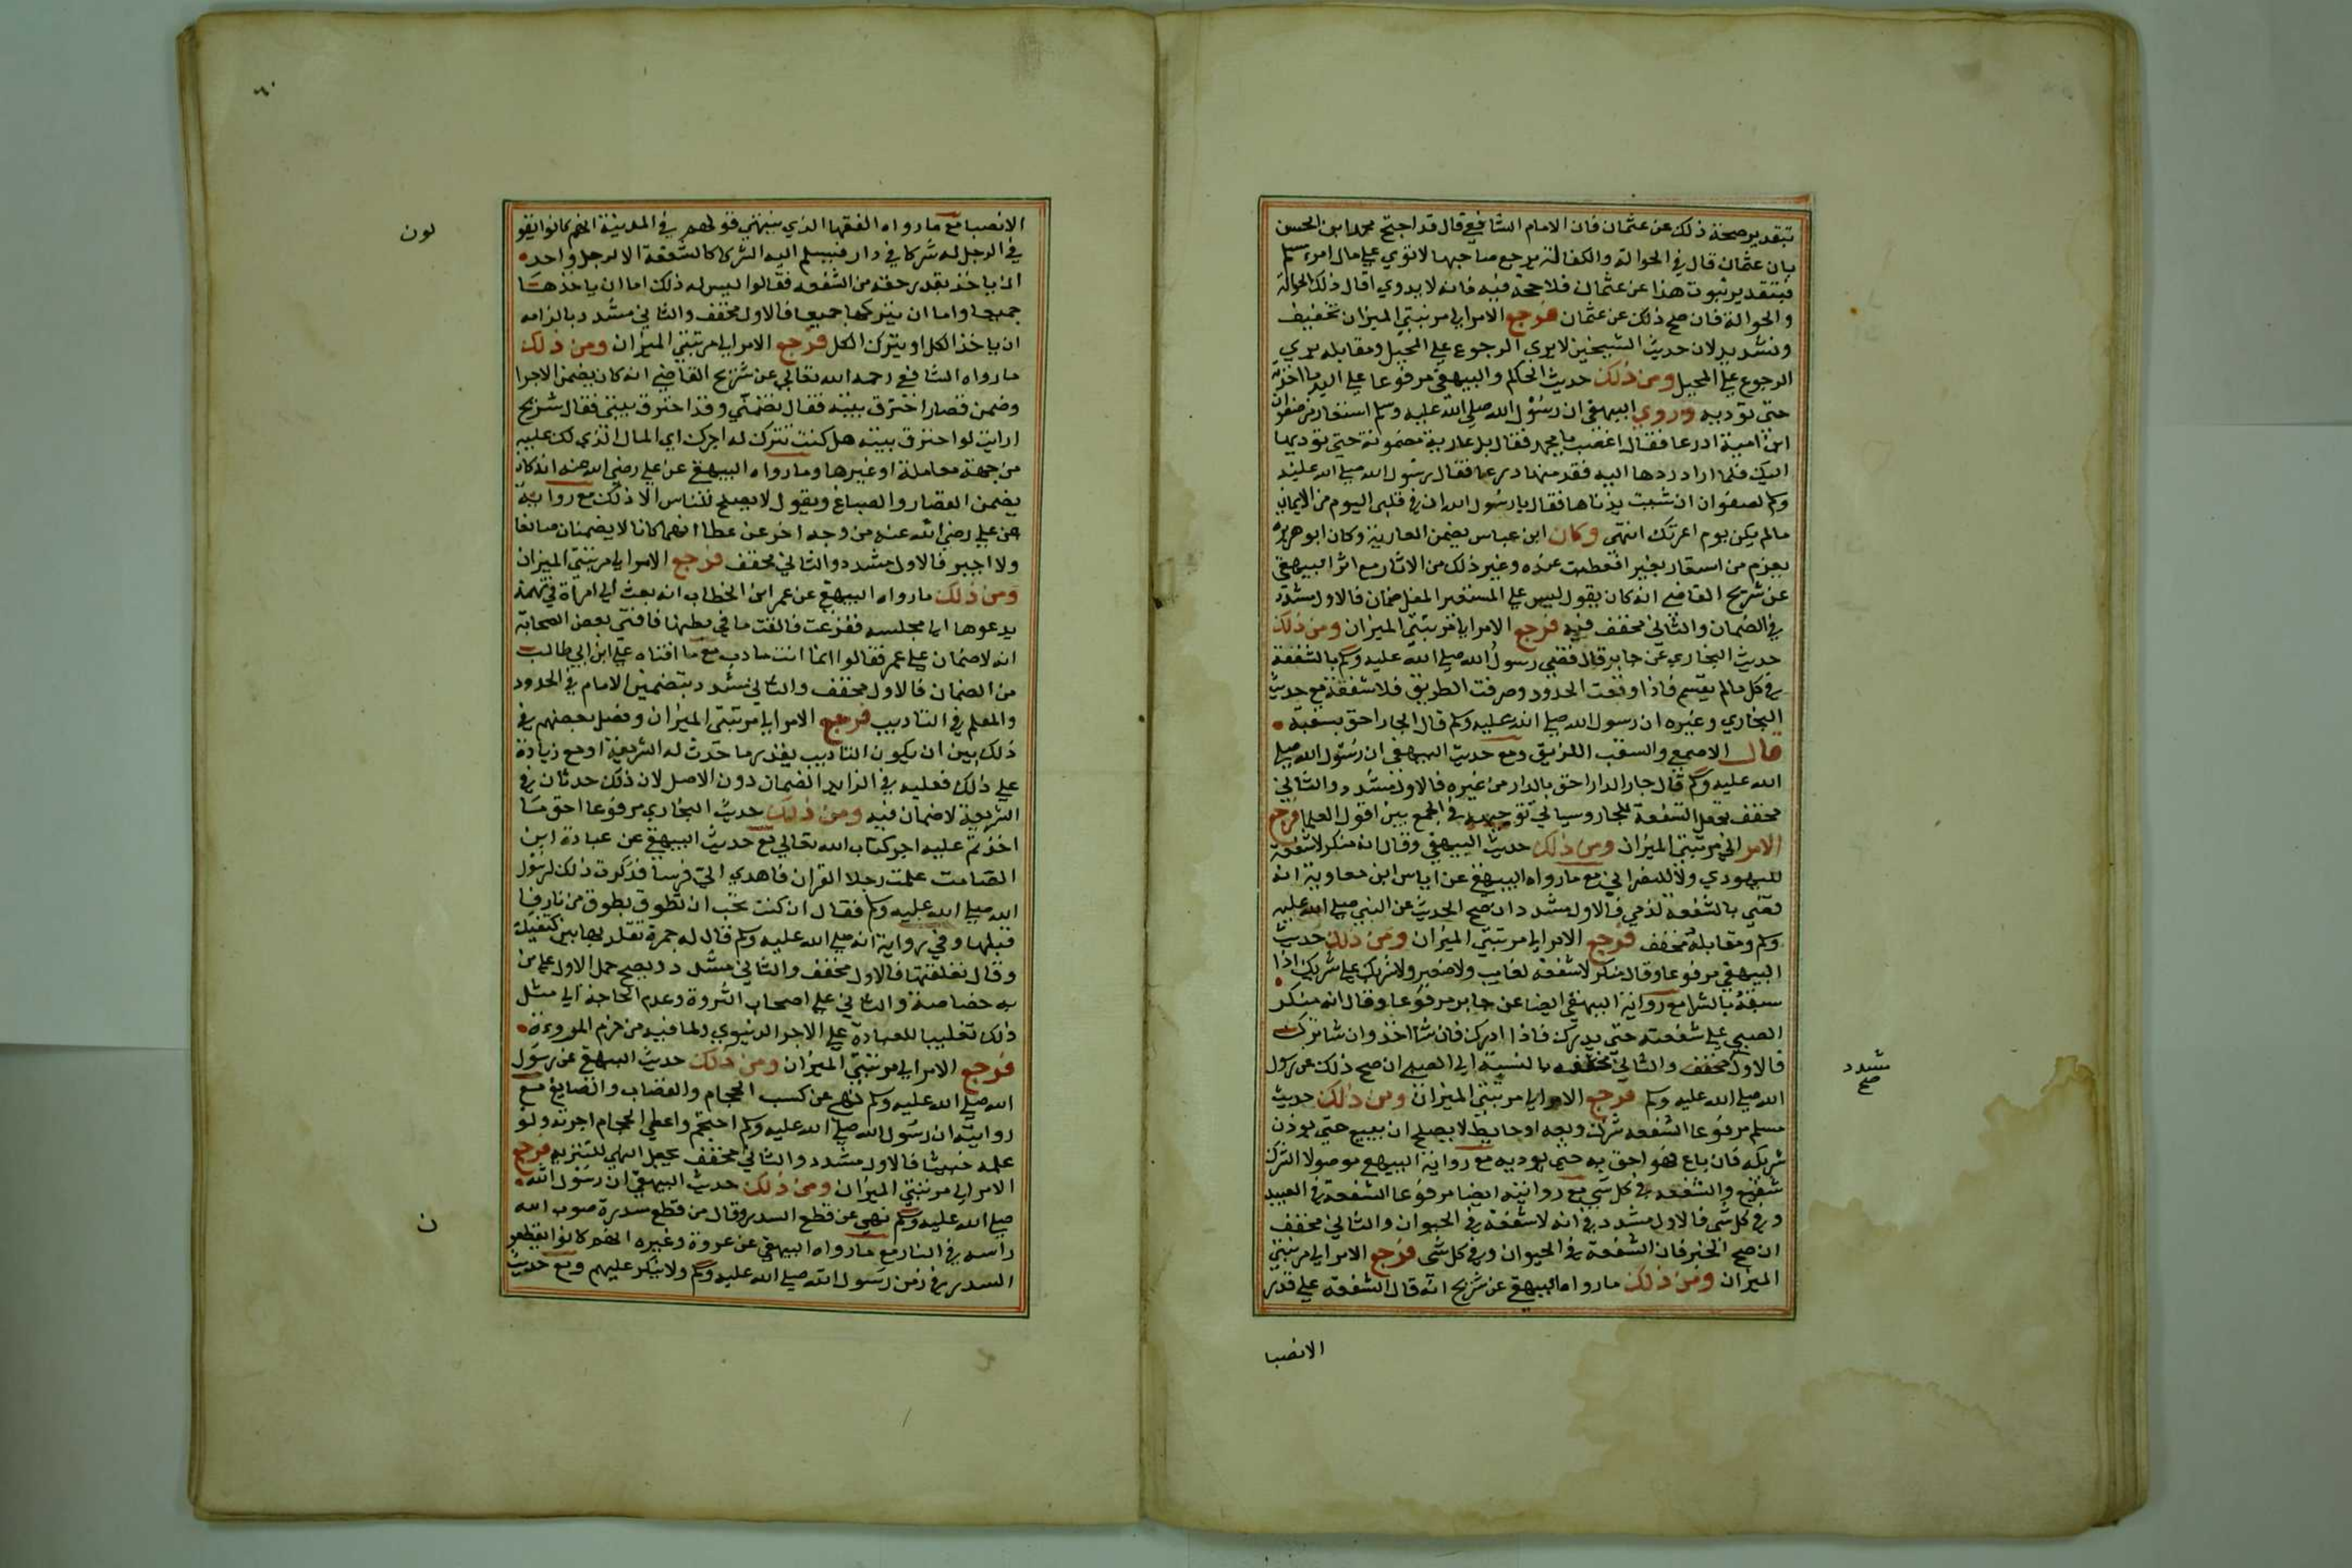 بتقدير صحة ذلك عن عثمان فان الامام الشافعي قال قد احتج محمد ابن الحسن
بان عثمان قال في الحوالة والكفالة يرجع صاحبها لا توي علي مال امرء مسلم
فبتقدير ثبوت هذا عن عثمان فلا حجة فيه فانه لا يدري اقال ذلك الحوالة
والحوالة فان صح ذلك عن عثمان فرجع الامر الي مرتبتي الميزان تخفيف
وتشديد لان حديث الشيخين لا يري الرجوع علي المحيل ومقابله يري
الرجوع علي المحيل ومن ذلك حديث الحكم والبيهقي مرفوعا علي اليد ما اخذته
حتى توديه وروي البيهقي ان رسول الله صلي الله عليه وسلم استعار من صفوان
ابن امية ادرعا فقال اغصب يا محمد فقال بل عارية مضمونة حتي نوديها
اليك فلما اراد ردها اليه فقد منها درعا فقال رسول الله صلي الله عليه
وسلم لصفوان ان شيت يدناها فقال يا رسول الله ان في قلبي اليوم من الايمان
مالم يكن يوم اعرتك انتهي وكان ابن عباس يضمن العارية وكان ابو هريرة
يغرم من استعار بعيرا فعطبت عنده وغير ذلك من الاثار مع اثر البيهقي
عن شريح القاضي انه كان يقول ليس علي المستعير المغل ضمان فالاول مشدد
في الضمان والثاني مخفف فيه فرجع الامر الي مرتبتي الميزان ومن ذلك
حديث البخاري عن جابر قال قضي رسول الله صلي الله عليه وسلم بالشفعة
في كل مالم يقسم فاذا وقعت الحدود وصرفت الطريق فلا شفعة مع حديث
البخاري وغيره ان رسول الله صلي الله عليه وسلم قال الجار احق بسقبه
قال الاصمعي والسقب اللزيق ومع حديث البيهقي ان رسول الله صلي
الله عليه وسلم قال جار الدار احق بالدار من غيره فالاول مشدد والثاني
مخفف بجعل الشفعة للجار وسياتي توجيهه في الجمع بين اقوال العلما فرجع
الامر الي مرتبتي الميزان ومن ذلك حديث البيهقي وقال انه منكر لا شفعة
لليهودي ولا للنصراني مع ما رواه البيهقي عن اياس ابن معاوية انه
قضي بالشفعة لذمي فالاول مشدد ان صح الحديث عن النبي صلي الله عليه
وسلم ومقابله مخفف فرجع الامر الي مرتبتي الميزان ومن ذلك حديث
البيهقي مرفوعا وقال منكر لا شفعة لغايب ولا صغير ولا شريك علي شريك اذا
سبقه بالشرا مع رواية البيهقي ايضا عن جابر مرفوعا وقال انه منكر
الصبي علي شفعته حتي يدرك فاذا ادرك فان شا اخذ وان شا ترك
فالاول مخفف والثاني مخفف بالنسبة الي الصبي ان صح ذلك عن رسول
مشدد
صح
الله صلي الله عليه وسلم فرجع الامر الي مرتبتي الميزان ومن ذلك حديث
مسلم مرفوعا الشفعة شرك وربعه او حايط لا يصلح ان يبيع حتي يوذن
شريكه فان باع فهو احق به حتي يوديه مع رواية البيهقي موصولا الشرك
شفيع والشفعة في كل شي مع روايته ايضا مرفوعا الشفعة في العبيد
وفي كل شي فالاول مشدد في انه لا شفعة في الحيوان والثاني مخفف
ان صح الخبر فان الشفعة في الحيوان وفي كل شي فرجع الامر الي مرتبتي
الميزان ومن ذلك ما رواه البيهقي عن شريح انه قال الشفعة علي قدر
الانصبا
٦٠
الانصبا مع ما رواه الفقها الذي ينتهي قولهم في المدينة انهم كانوا يقو
لون
في الرجل له شركا في دار فيسلم اليه الشركا الشفعة الا رجل واحد
ان ياخذ بقدر حقه من الشفعة فقالوا ليس له ذلك اما ان ياخذها
جميعا واما ان يتركها جميعا فالاول مخفف والثاني مشدد بالزامه
ان ياخذ الكل او يترك الكل فرجع الامر الي مرتبتي الميزان ومن ذلك
ما رواه الشافعي رحمه الله تعالي عن شريح القاضي انه كان يضمن الاجرا
وضمن قصارا احترق بيته فقال تضمنني وقد احترق بيتي فقال شريح
ارايت لو احترق بيته هل كنت تترك له اجرك اي المال الذي لك عليه
من جهة معاملة او غيرها وما رواه البيهقي عن علي رضي الله عنه انه كان
يضمن القصار والصباغ ويقول لا يصلح للناس الا ذلك مع روايته
عن علي رضي الله عنه من وجه اخر عن عطا انهما كانا لا يضمنان صانعا
ولا اجيرا فالاول مشدد والثاني مخفف فرجع الامر الي مرتبتي الميزان
ومن ذلك ما رواه البيهقي عن عمر ابن الخطاب انه بعث الي امراة في تهمة
يدعوها الي مجلسه ففزعت فالقت ما في بطنها فافتي بعض الصحابة
انه لا ضمان علي عمر فقالوا انما انت مادب مع ما افتاه علي ابن ابي طالب
من الضمان فالاول مخفف والثاني مشدد بتضمين الامام في الحدود
والمعلم في التاديب فرجع الامر الي مرتبتي الميزان وفصل بعضهم في
ذلك بين ان يكون التاديب بقدر ما حدت له الشريعة او مع زيادة
علي ذلك فعليه في الزايد الضمان دون الاصل لان ذلك حدثان في
الشريعة لا ضمان فيه ومن ذلك حديث البخاري مرفوعا احق ما
اخذتم عليه اجر كتاب الله تعالي مع حديث البيهقي عن عبادة ابن
الصامت علمت رجلا القران فاهدي الي فرسا فذكرت ذلك لرسول
الله صلي الله عليه وسلم فقال ان كنت تحب ان تطوق بطوق من نار فا
قبلها وفي رواية انه صلي الله عليه وسلم قال له جمرة تقلد بها بين كتفيك
وقال تعلقتها فالاول مخفف والثاني مشدد ويصح حمل الاول علي من
به خصاصة والثاني علي اصحاب الثروة وعدم الحاجة الي مثل
ذلك تغليبا للعبادة علي الاجر الدنيوي ولما فيه من خرم المروءة
فرجع الامر الي مرتبتي الميزان ومن ذلك حديث البيهقي عن رسول
الله صلي الله عليه وسلم نهي عن كسب الحجام والقصاب والصايغ مع
روايته ان رسول الله صلي الله عليه وسلم احتجم واعطي الحجام اجرته ولو
علمه خبيثا فالاول مشدد والثاني مخفف بجعل النهي للتنزيه فرجع
الامر الي مرتبتي الميزان ومن ذلك حديث البيهقي ان رسول الله
صلي الله عليه وسلم نهي عن قطع السدر وقال من قطع سدرة صوب الله
راسه في النار مع ما رواه البيهقي عن عروة وغيره انهم كانوا يقطعو
ن
السدر في زمن رسول الله صلي الله عليه وسلم ولا ينكر عليهم ومع حديث